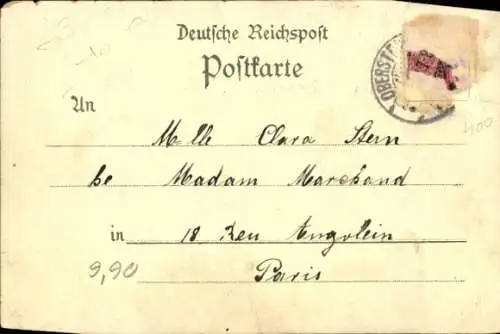 Deutsche Reichspost
Postkarte
OBERST
An
Melle Clara Stern
be Madam Marchand
400
in 18 Reu Angolein
9,90
Paris